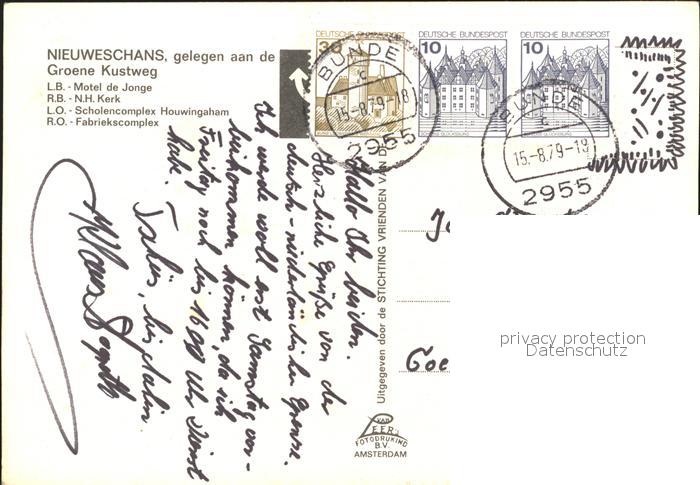 NIEUWESCHANS, gelegen aan de
Groene Kustweg
L.B. - Motel de Jonge
R.B. - N.H. Kerk
L.O. - Scholencomplex Houwingaham
R.O. - Fabriekscomplex
DEUTSCHE BUNDESPOST
30
DEUTSCHE BUNDESPOST
10
SCHLOSS GLÜCKSBURG
DEUTSCHE BUNDESPOST
10
SCHLOSS GLÜCKSBURG
BUNDE
c
15.-8.79-18
2955
BUNDE
c
15.-8.79-19
2955
Hallo Ihr beiden.
Herzliche Grüße von der
deutsch-niederländischen Grenze.
Ich werde wohl erst Samstag vor-
beikommen können, da ich
Freitag noch bis 1600 Uhr Dienst
hab.
Tschüs, bis dahin
Klaus
Uitgegeven door de STICHTING VRIENDEN VAN D
VAN LEER'S
FOTODRUKIND
B.V.
AMSTERDAM
privacy protection
Datenschutz